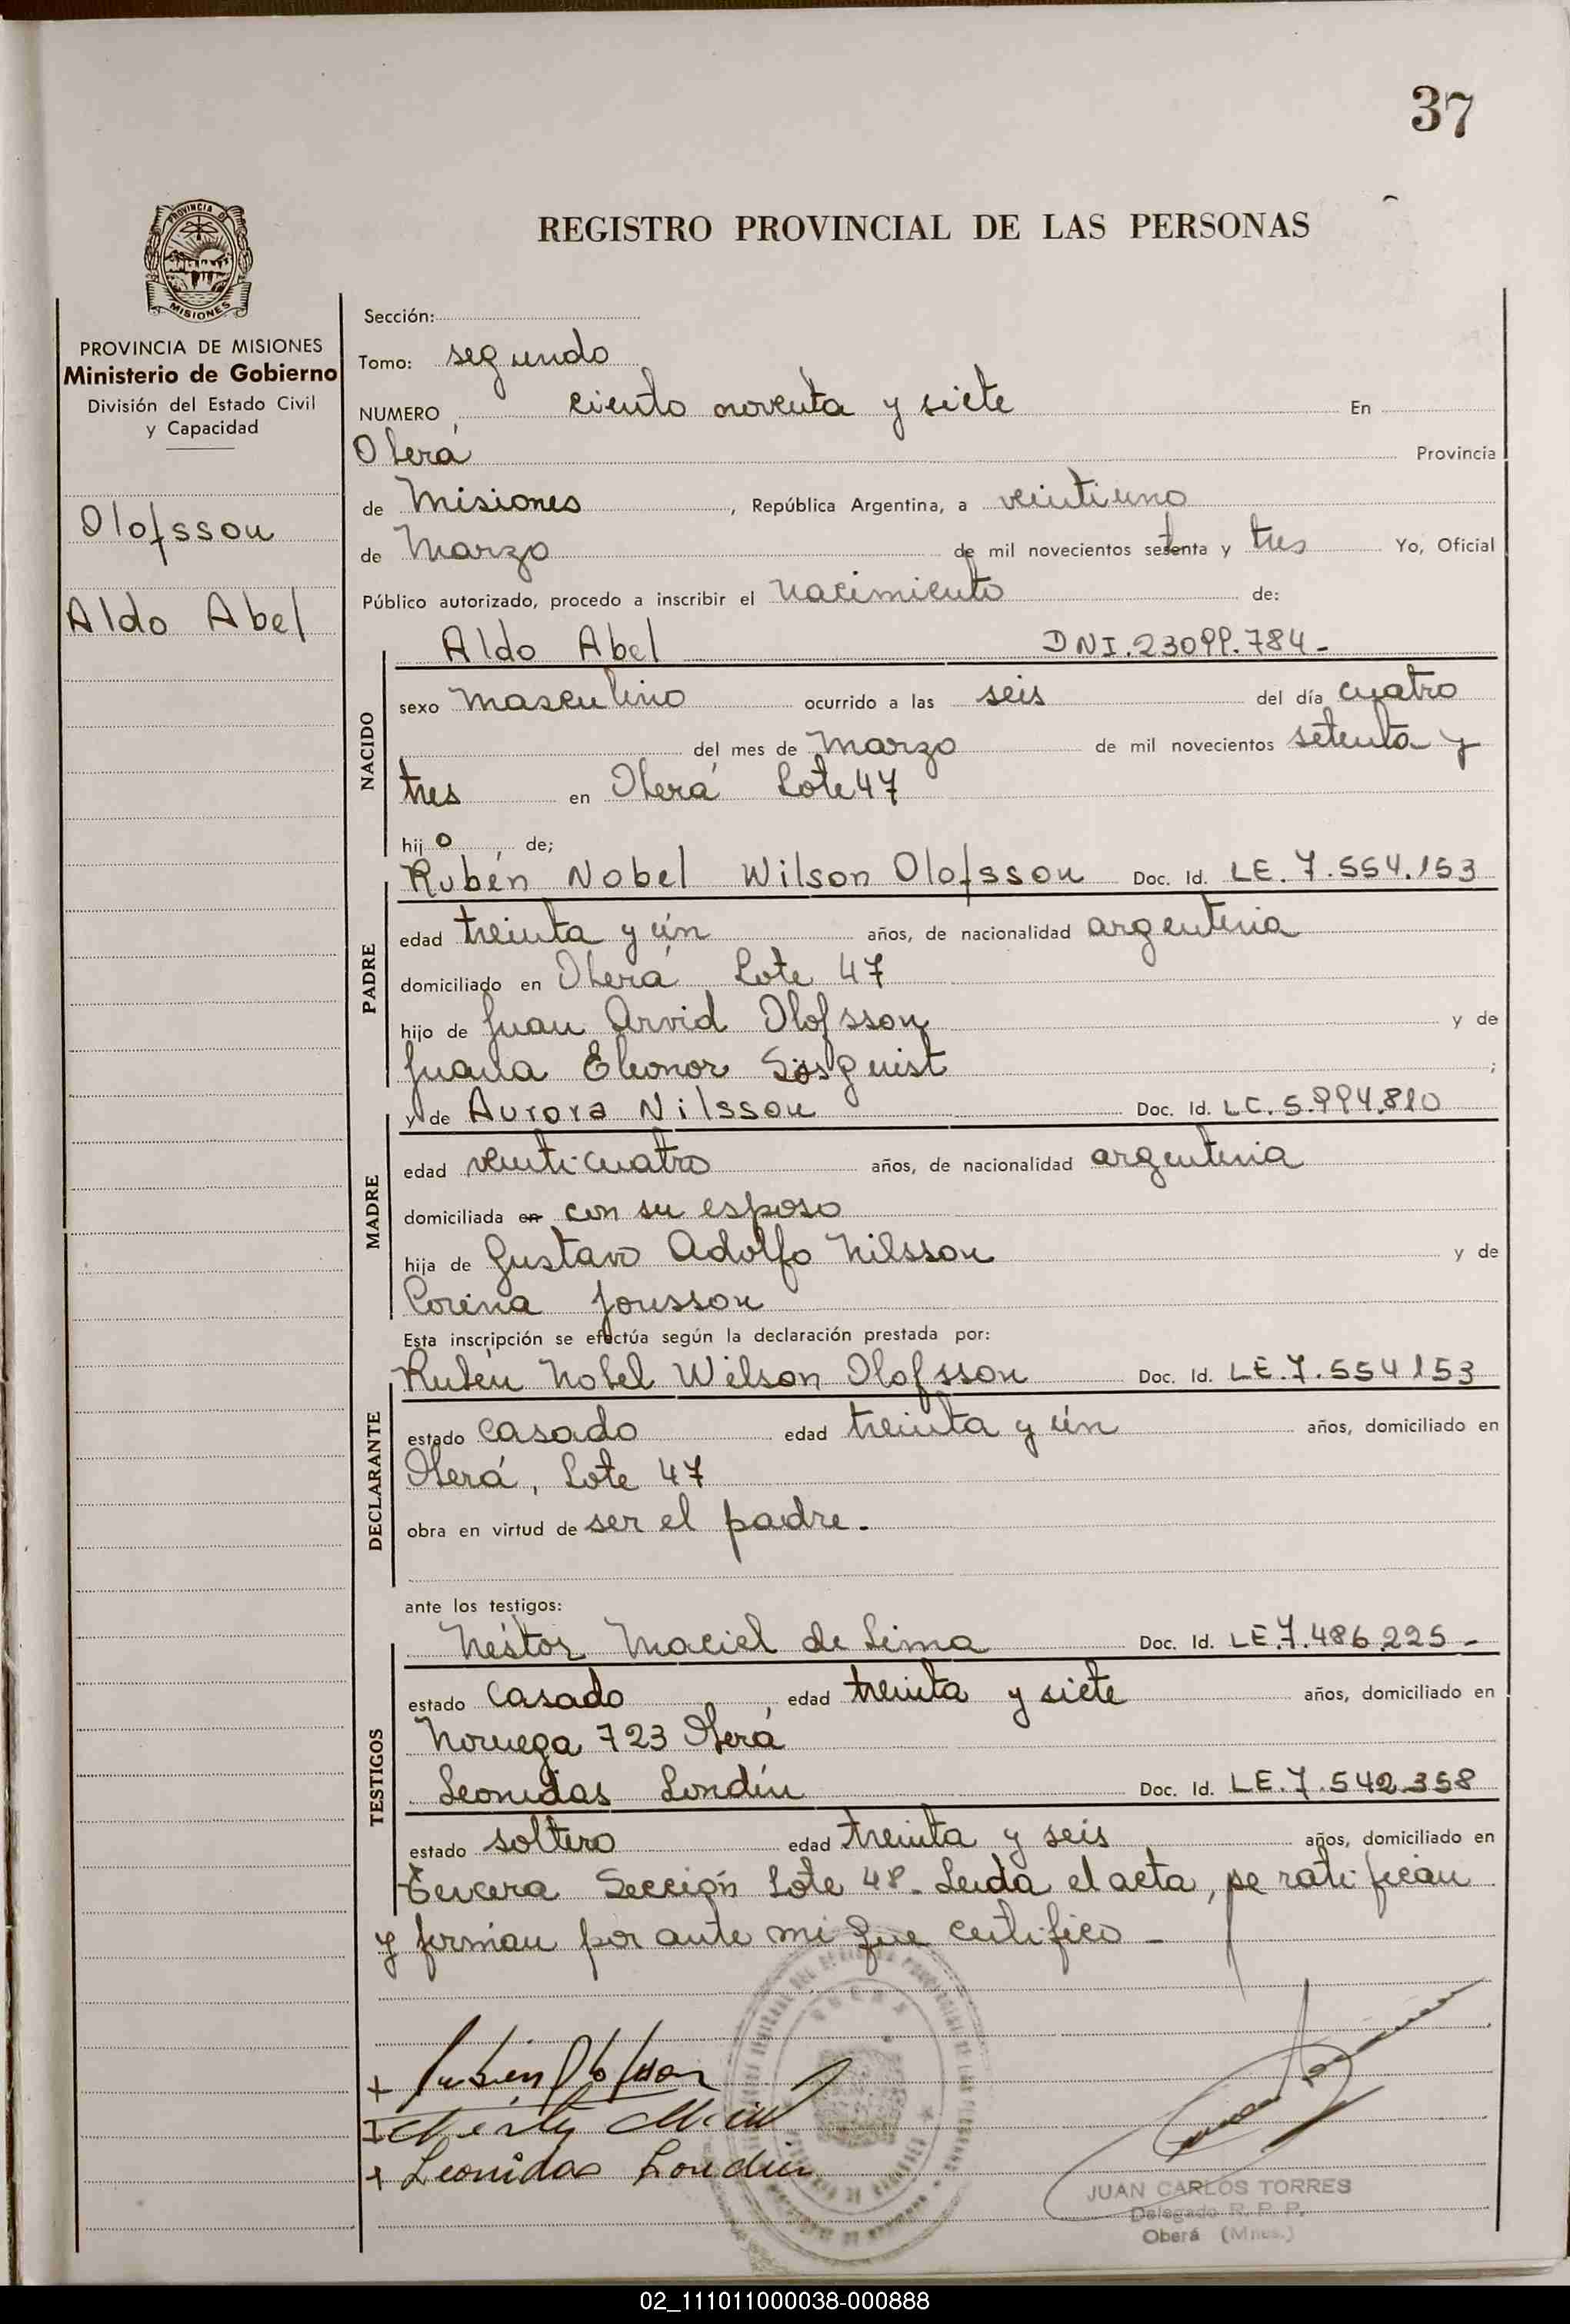 37
REGISTRO PROVINCIAL DE LAS PERSONAS
PROVINCIA DE MISIONES
Ministerio de Gobierno
División del Estado Civil
y Capacidad
Olofsson
Aldo Abel
Sección:
Tomo: segundo
NUMERO ciento noventa y siete En
Oberá Provincia
de Misiones, República Argentina, a veintiuno
de Marzo de mil novecientos setenta y tres Yo, Oficial
Público autorizado, procedo a inscribir el nacimiento de:
Aldo Abel DNI.23099.784-
NACIDO
sexo masculino ocurrido a las seis del día cuatro
del mes de marzo de mil novecientos setenta y
tres en Oberá Lote 47
hijo, de;
Rubén Nobel Wilson Olofsson Doc. Id. LE. 7.554.153
PADRE
edad treinta y ún años, de nacionalidad argentina
domiciliado en Oberá Lote 47
hijo de Juan Arvid Olofsson y de
Juana Eleonor;
y de Aurora Nilsson Doc. Id. LC. 5.994.810
MADRE
edad veinticuatro años, de nacionalidad argentina
domiciliada en con su esposo
hija de Gustavo Adolfo Nilsson y de
Corina Jonsson
Esta inscripción se efectúa según la declaración prestada por:
Rubén Nobel Wilson Olofsson Doc. Id. LE.7.554153
DECLARANTE
estado casado edad treinta y ún años, domiciliado en
Oberá, Lote 47
obra en virtud de ser el padre.
ante los testigos:
Néstor Maciel de Lima Doc. Id. LE.7.486.225-
TESTIGOS
estado casado, edad treinta y siete años, domiciliado en
Noruega 723 Oberá
Leonidas Londín Doc. Id. LE.7.542.358
estado soltero edad treinta y seis años, domiciliado en
Tercera Sección Lote 48. Leida el acta, se ratifican
y firman por ante mi que certifico -
Rubén Olofsson
Leonidas Londin
JUAN CARLOS TORRES
Delegado R. P. P.
Oberá (Mnes.)
MISIONES
02_111011000038-000888